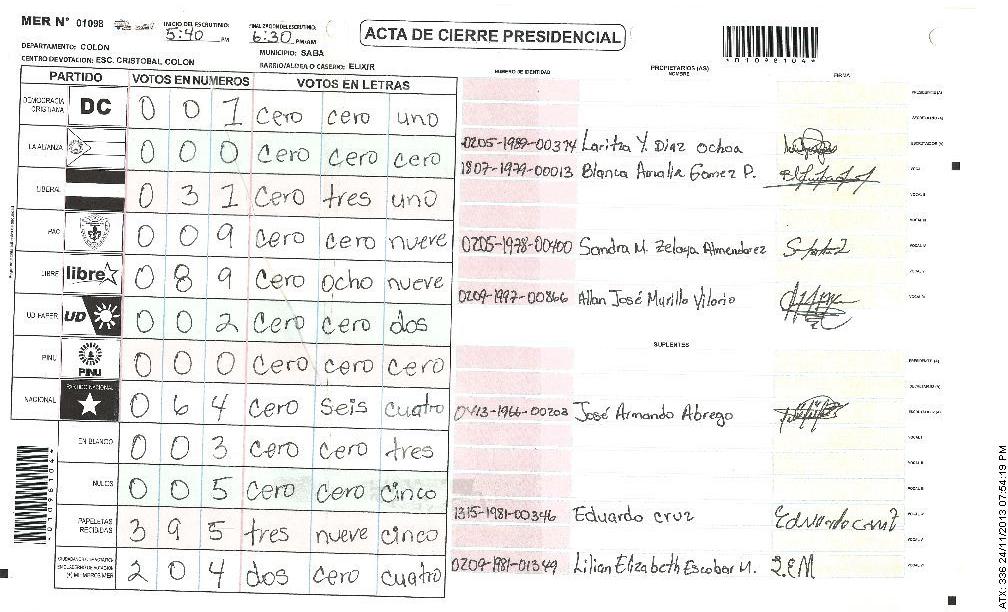 MER N° 01098 INICIO DEL ESCRUTINIO: 5:40 PM FINALIZACION DEL ESCRUTINIO: 6:30 PM/AM ACTA DE CIERRE PRESIDENCIAL *01098104*
DEPARTAMENTO: COLON MUNICIPIO: SABA
CENTRO DE VOTACION: ESC. CRISTOBAL COLON BARRIO/ALDEA O CASERIO: ELIXIR
NUMERO DE IDENTIDAD PROPIETARIOS (AS) NOMBRE FIRMA
PARTIDO VOTOS EN NUMEROS VOTOS EN LETRAS
DEMOCRACIA CRISTIANA DC 0 0 1 cero cero uno
LA ALIANZA 0 0 0 cero cero cero
LIBERAL 0 3 1 cero tres uno
PAC 0 0 9 cero cero nueve
LIBRE libre 0 8 9 cero ocho nueve
UD FAPER UD 0 0 2 cero cero dos
PINU PINU 0 0 0 cero cero cero
NACIONAL PARTIDO NACIONAL 0 6 4 cero seis cuatro
EN BLANCO 0 0 3 cero cero tres
NULOS 0 0 5 cero cero cinco
PAPELETAS RECIBIDAS 3 9 5 tres nueve cinco
2 0 4 dos cero cuatro
PRESIDENTE (A)
SECRETARIO (A)
0205-1989-00374 Laritza Y. Diaz Ochoa ESCRUTADOR (A)
1807-1979-00013 Blanca Amalia Gomez P. VOCAL I
VOCAL II
VOCAL III
0205-1978-00400 Sandra M. Zelaya Almendarez VOCAL IV
VOCAL V
0209-1997-00866 Allan José Murillo Vilorio VOCAL VI
SUPLENTES
PRESIDENTE (A)
SECRETARIO (A)
0413-1966-00203 José Armando Abrego ESCRUTADOR (A)
VOCAL I
VOCAL II
VOCAL III
1315-1981-00346 Eduardo cruz Eduardo cruz VOCAL IV
VOCAL V
0209-1981-01349 Lilian Elizabeth Escobar M. L.E.M VOCAL VI
*01098104*
ATX: 336 24/11/2013 07:54:19 PM